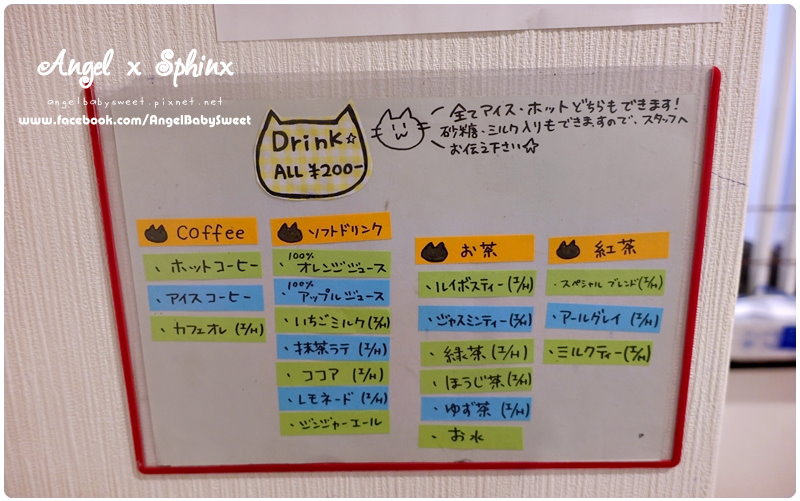 Angel x Sphinx
angelbabysweet.pixnet.net
www.facebook.com/AngelBabySweet
Drink☆
ALL ¥200-
全てアイス・ホットどちらもできます!
砂糖・ミルク入りもできますので、スタッフへ
お伝え下さい☆
Coffee
・ホットコーヒー
・アイスコーヒー
・カフェオレ (I/H)
ソフトドリンク
・100%オレンジジュース
・100%アップルジュース
・いちごミルク(I/H)
・抹茶ラテ (I/H)
・ココア (I/H)
・レモネード(I/H)
・ジンジャーエール
お茶
・ルイボスティー(I/H)
・ジャスミンティー(I/H)
・緑茶(I/H)
・ほうじ茶(I/H)
・ゆず茶(I/H)
・お水
紅茶
・スペシャルブレンド(I/H)
・アールグレイ(I/H)
・ミルクティー(I/H)